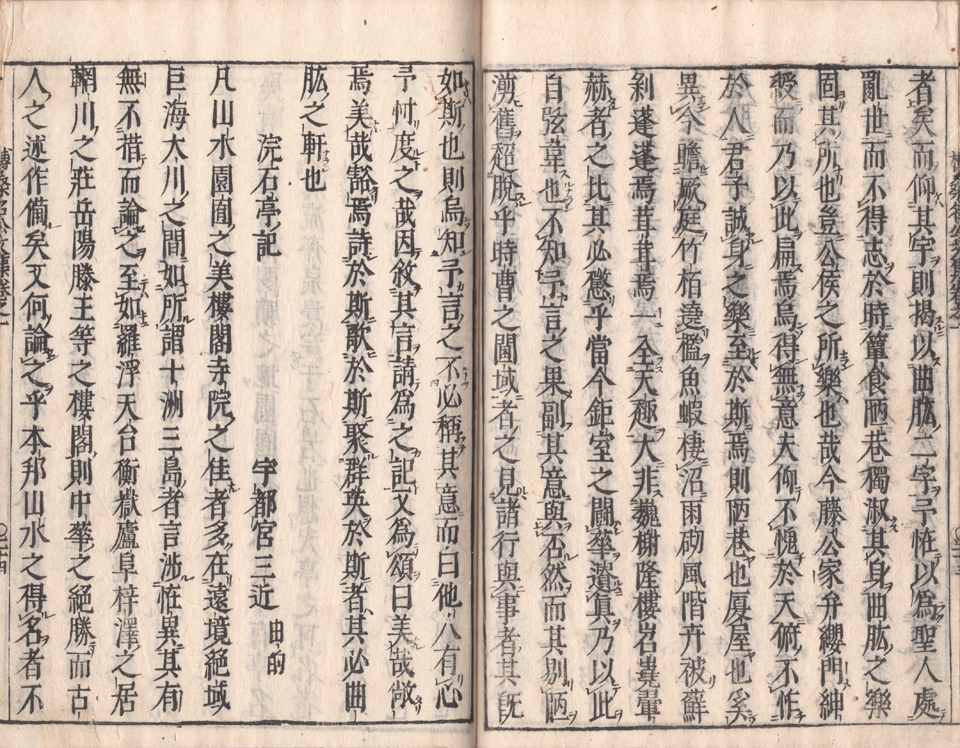 者矣而仰其宇則揭以曲肱二字予恠以為聖人處
亂世而不得志於時簞食陋巷獨淑其身曲肱之樂
固其所也豈公侯之所樂也哉今藤公家弁纓門紳
綬而乃以此扁焉烏得無意夫仰不愧於天俯不怍
於人君子誠身之樂至於斯焉則陋巷也厦屋也奚
異今瞻厥庭竹栢遶檻魚蝦棲沼雨砌風階卉被蘚
剝蓬蓬焉茸茸焉一全天趣大非巍榭隆樓岩嶤翬
赫者之比其必懲乎當今鉅室之鬪華遺眞乃以此
自弦韋也不知予言之果副其意與否然而其剔陋
淯舊超脫乎時曹之閫域者之見諸行與事者其旣
如斯也則烏知予言之不必稱其意而曰他人有心
予忖度之哉因敘其言請為之記又為頌曰美哉敞
焉美哉豁焉詩於斯歌於斯聚群英於斯者其必曲
肱之軒也
浣石亭記 宇都宮三近 由的
凡山水園囿之美樓閣寺院之佳者多在遠境絕域
巨海大川之間如所謂十洲三島者言涉恠異其有
無不措而論之至如羅浮天台衡嶽廬阜梓澤之居
輞川之莊岳陽滕王等之樓閣則中華之絕勝而古
人之述作備矣又何論之乎本邦山水之得名者不